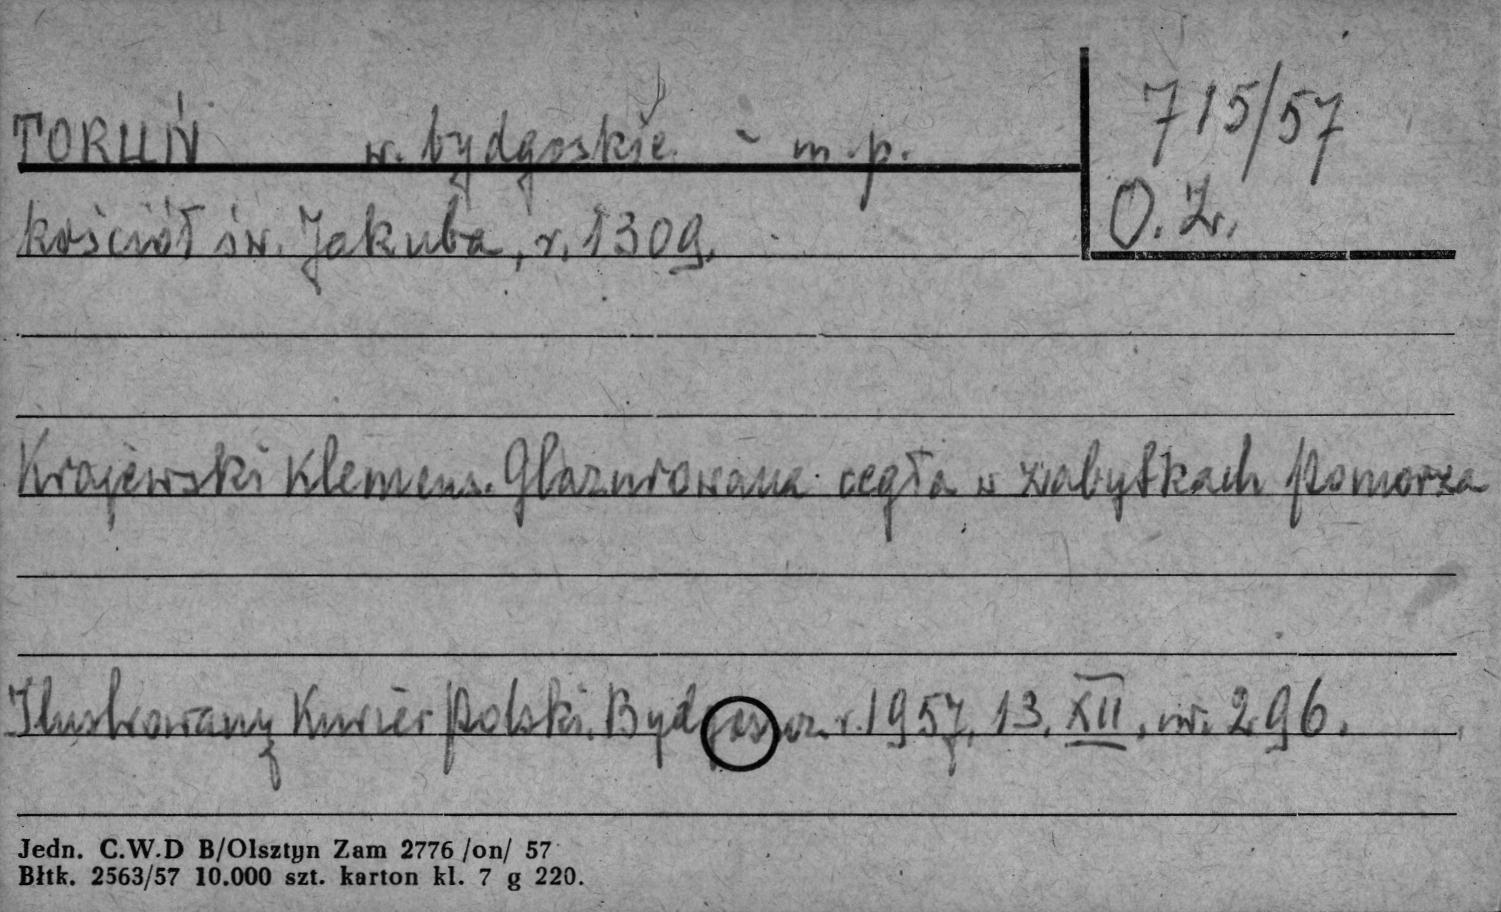 TORUŃ w. bydgoskie - m.p.
715/57
O. Zr.
kościół św. Jakuba, r. 1309.
Krajewski Klemens. Glazurowana cegła w zabytkach Pomorza
Ilustrowany Kurier Polski. Bydgoszcz. r. 1957, 13. XII, nr. 296.
Jedn. C.W.D B/Olsztyn Zam 2776 /on/ 57
Błtk. 2563/57 10.000 szt. karton kl. 7 g 220.